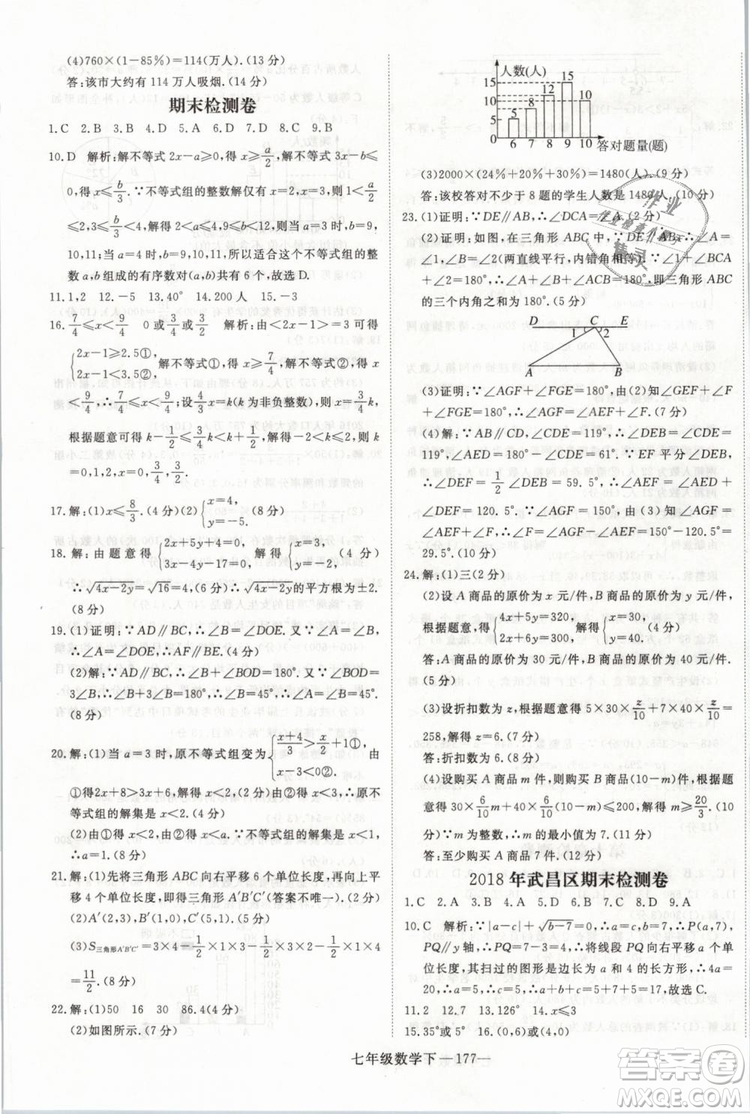 (4)760×(1-85%)=114(万人).(13 分)
答:该市大约有 114 万人吸烟.(14 分)
期末检测卷
1.C 2.B 3.B 4.D 5.A 6.D 7.C 8.C 9.B
10.D 解析:解不等式 2x-a≥0,得 x≥a/2.解不等式 3x-b
≤0,得 x≤b/3.∵不等式组的整数解仅有 x=2,x=3,则 1<a/2
≤2,3≤b/3<4,解得 2<a≤4,9≤b<12,则 a=3 时,b=9,
10,11;当 a=4 时,b=9,10,11.所以适合这个不等式组的整
数 a,b 组成的有序数对(a,b)共有 6 个.故选 D.
11.1,2 12.-5 13.40° 14.200 人 15.-3
16.7/4≤x<9/4 0或3/4或3/2 解析:由<2x-1>=3 可得
{2x-1≥2.5,① 2x-1<3.5.② 解不等式①,得 x≥7/4,解不等式②,得 x<
9/4,∴7/4≤x<9/4;设4/3x=k(k 为非负整数),则 x=3/4k,
根据题意可得 k-1/2≤3/4k<k+1/2,即-2<k≤2,则 k
=0,1,2,x=0,3/4,3/2.
17.解:(1)x≤8/3.(4 分) (2){x=4, y=-5. (8 分)
18.解:由题意得{2x+5y=-6, 3x-4y=17. 解得{x=3,y=-2. (4 分)
∴√4x-2y=√16=4.(6 分)∴√4x-2y的平方根为±2.
(8 分)
19.(1)证明:∵AD∥BC,∴∠B=∠DOE.又∵∠A=∠B,
∴∠A=∠DOE,∴AF∥BE.(4 分)
(2)解:∵AD∥BC,∴∠B+∠BOD=180°.又∵∠BOD=
3∠B,∴4∠B=180°,∴∠B=45°,∴∠A=∠B=45°.
(8 分)
20.解:(1)当 a=3 时,原不等式组变为{(x+4)/3>x/2+1,① x-3<0.②由
①得2x+8>3x+6,解得x<2.由②得x<3.(3 分)∴原不
等式组的解集是 x<2.(5 分)
(2)由原不等式组得{x<2,x<a. ∵不等式组的解集为 x<2,
∴a≥2.(8 分)
21.解:(1)先将三角形 ABC 向右平移 4 个单位长度,再向下平
移 6 个单位长度得到三角形 A'B'C'(答案不唯一).(2 分)
(2)A'(2,3),B'(1,0),C'(5,1).(5 分)
(3)S三角形A'B'C'=3×4-1/2×1×3-1/2×1×4-1/2×2×3=
11/2.(8 分)
22.解:(1)50 16 30 (4 分)
(2)如图所示.(7 分)
人数(人)
15
12
10
8
5
0
6 7 8 9 10 答对题量(题)
(3)2000×(24%+20%+30%)=1480(人).(9 分)
答:该校答对不少于 8 题的学生人数是 1480 人.(10 分)
23.(1)证明:∵DE∥AB,∴∠DCA=∠A.(2 分)
(2)证明:如图所示,在三角形 ABC 中,∵DE∥AB,∴∠A
=∠ACD,∠B=∠BCE(两直线平行,内错角相等).(4 分)
∵∠ACD+∠ACB+∠BCE=180°,∴∠A+∠ACB+∠B
=180°,即三角形 ABC 的三个内角和为 180°.(5 分)
D C E
A B
(3)证明:∵∠AGF+∠FGE=180°,由(2)知∠GEF+
∠F+∠FGE=180°,∴∠AGF=∠AEF+∠F.(7 分)
(4)解:∵AB∥CD,∠CDE=119°,∴∠DEB=∠CDE=
119°,∠AED=180°-∠CDE=61°.∵EF 平分∠DEB,
∴∠DEF=1/2∠DEB=59.5°,∴∠AEF=∠AED+
∠DEF=120.5°.∵∠AGF=150°,由(3)知∠AGF=
∠AEF+∠F,∴∠F=∠AGF-∠AEF=150°-120.5°=
29.5°.(10 分)
24.解:(1)三(2 分)
(2)设 A 商品的原价为 x 元/件,B 商品的原价为 y 元/件,
根据题意得{4x+5y=320,2x+6y=300,解得{x=30,y=40.(5 分)
答:A 商品的原价为 30 元/件,B 商品的原价为 40 元/件.
(6 分)
(3)设折扣数为 z,根据题意得 5×30×z/10+7×40×z/10=
258,解得 z=6.(8 分)
答:折扣数为 6.(9 分)
(4)设购买 A 商品 m 件,则购买 B 商品(10-m)件,根据题
意得 30×6/10m+40×6/10(10-m)≤200,解得 m≥20/3.(10
分)∵m 为整数,∴m 的最小值为 7.(11 分)
答:至少购买 A 商品 7 件.(12 分)
2018 年武昌区期末检测卷
1.C 2.A 3.C 4.B 5.D 6.D 7.B 8.C 9.A
10.C 解析:∵|a-c|+√b-7=0,∴a=c,b=7,∴P(a,7),
PQ∥y 轴,∴PQ=7-3=4,∴将线段 PQ 向右平移 a 个单
位长度,其扫过的图形是边长为 a 和 4 的矩形,∴4a=
20,∴a=5,∴a+b+c=5+7+5=17.故选 C.
11.2 12.7 13.126° 14.<3
15.35°或 55° 16.(0,6)或(0,-4)
七年级数学下—177—
作业
精灵
作业精灵